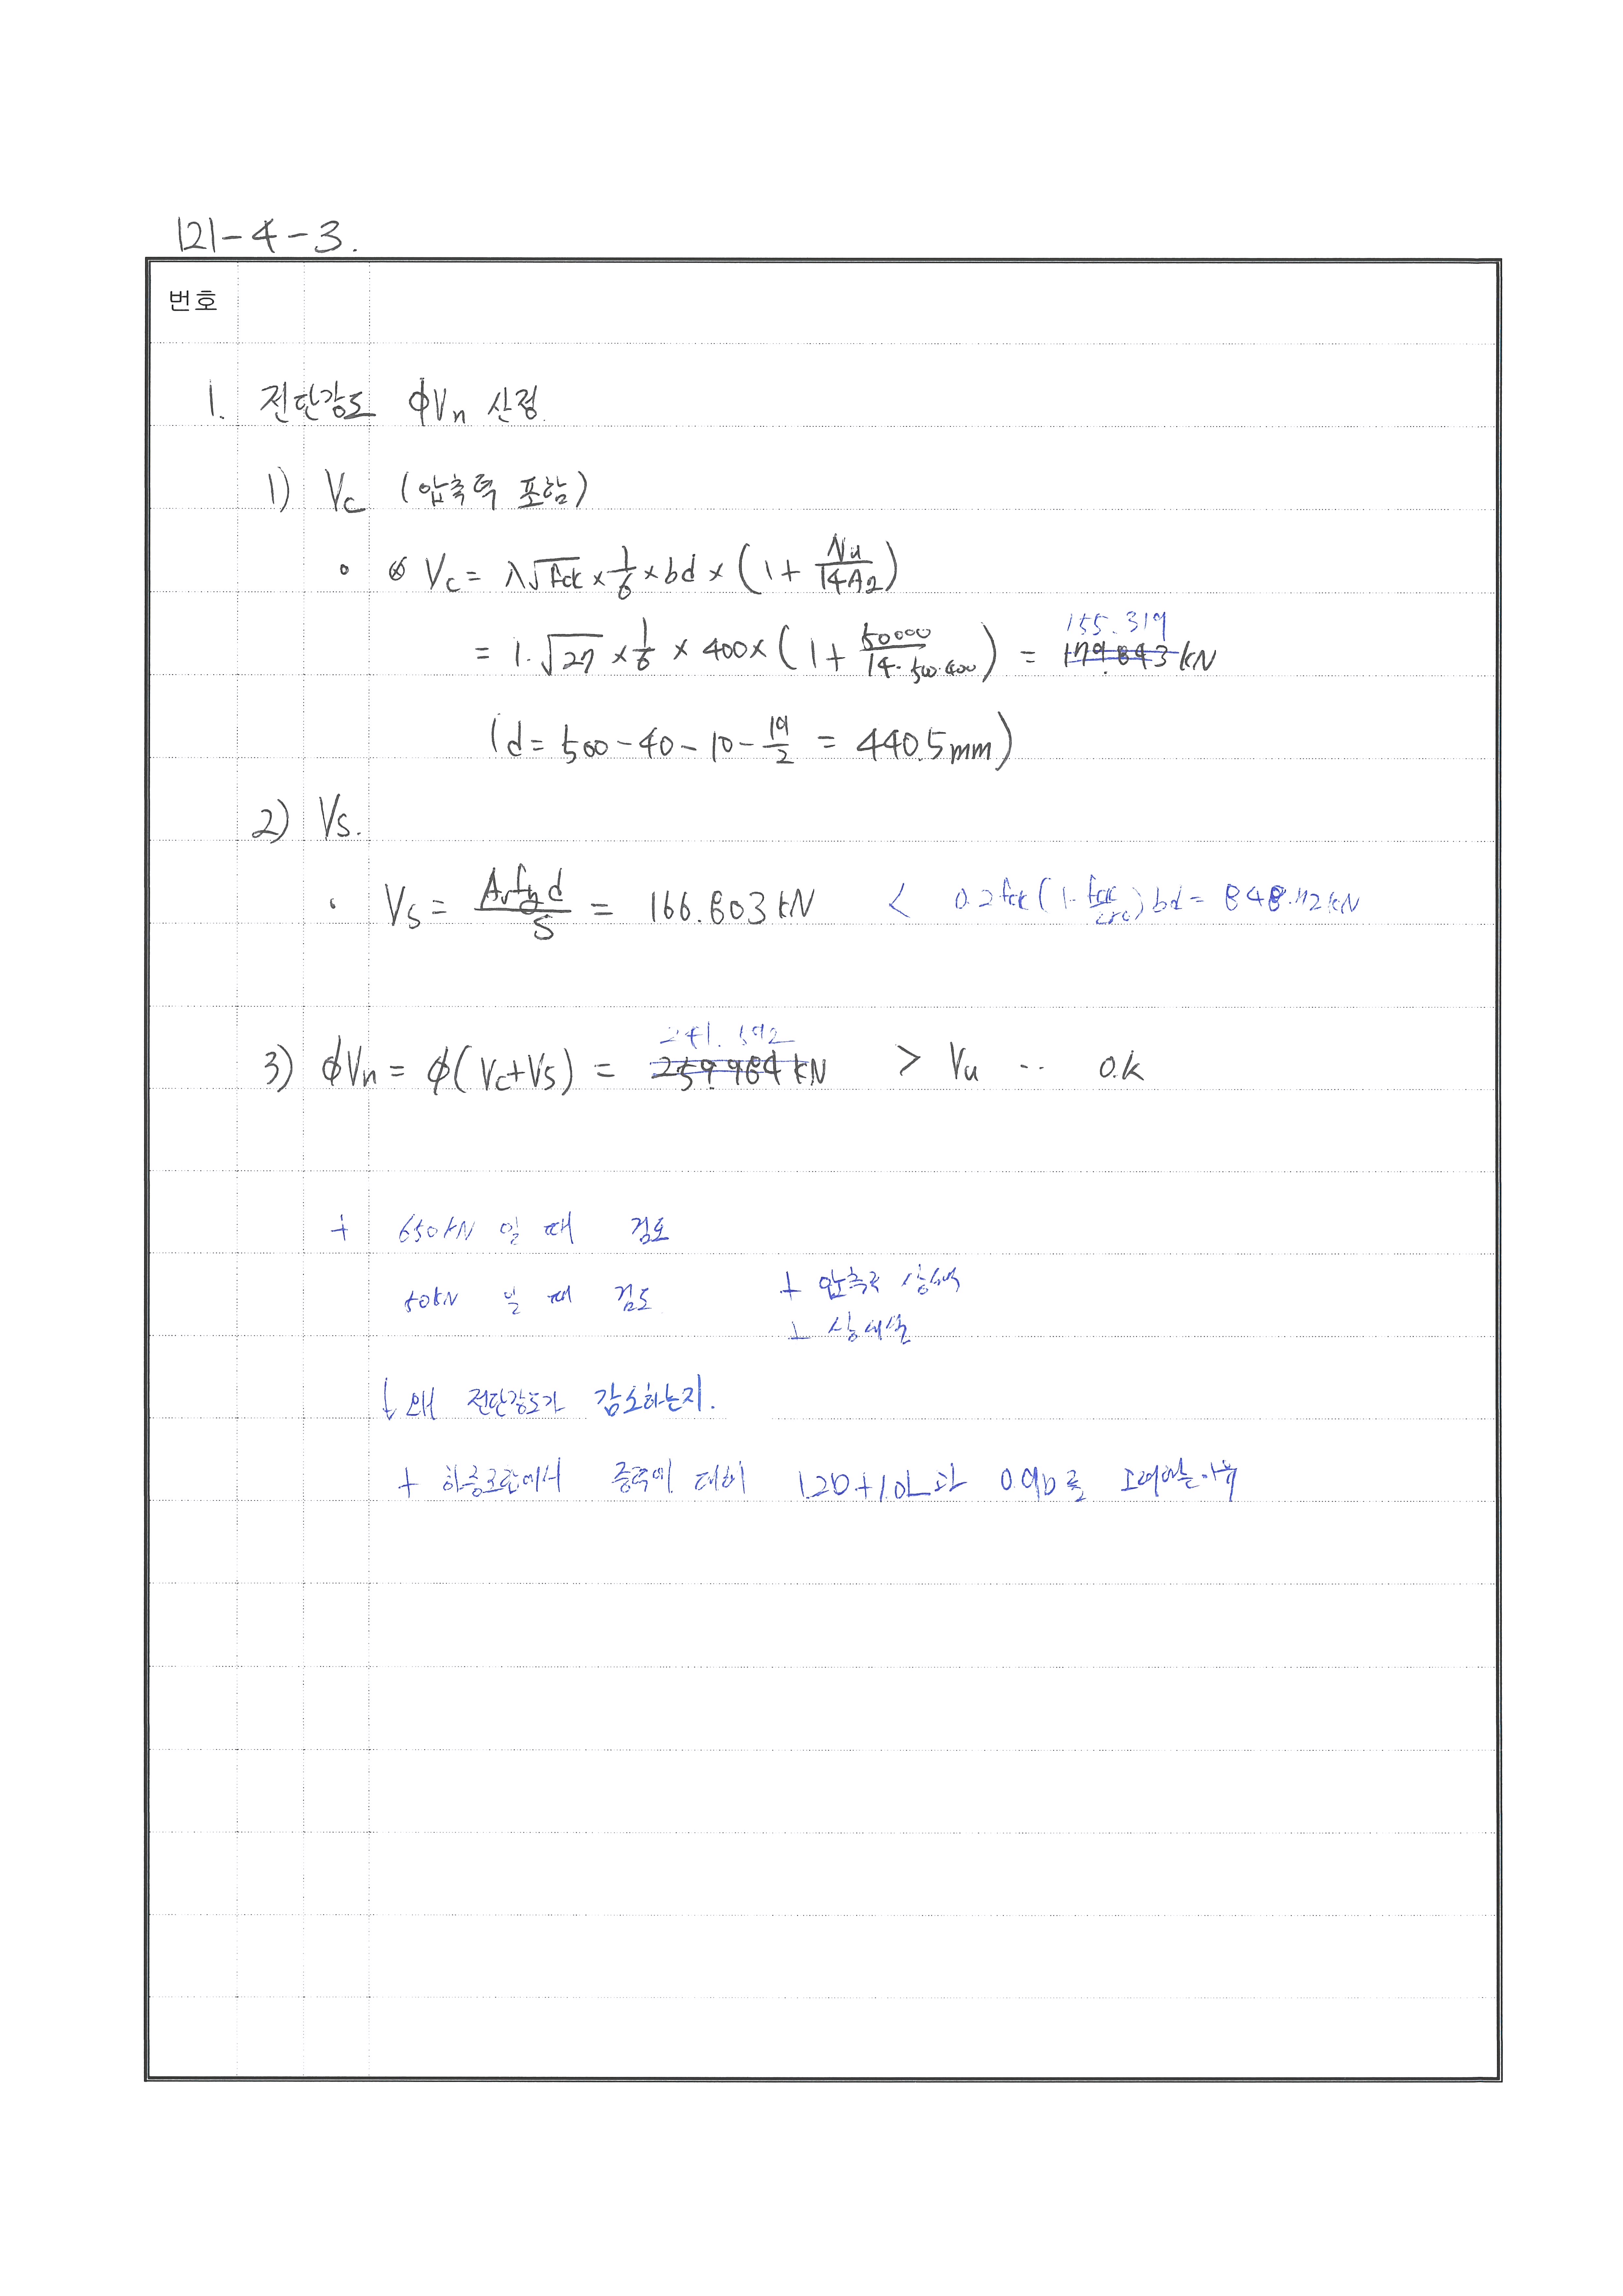 121-4-3.
번호
1. 전단강도 ϕVn 산정.
1) Vc (압축력 포함)
• Vc = λ√fck × 1/6 × bd × (1 + Nu/14Ag)
155.319
= 1·√27 × 1/6 × 400 × (1 + 50000/14·500·400) = 179.843 kN
(d = 500 - 40 - 10 - 19/2 = 440.5mm)
2) Vs.
• Vs = Avfyd/S = 166.803 kN < 0.2fck(1-fck/250)bd = 848.112kN
241.592
3) ϕVn = ϕ(Vc+Vs) = 259.984 kN > Vu ·· o.k
+ 650kN 일 때 검토
50kN 일 때 검토 + 압축측
↓ 왜 전단강도가 감소하는지.
+ 하중조합에서 중력에 대해 1.2D+1.0L과 0.9D를 고려하는 이유